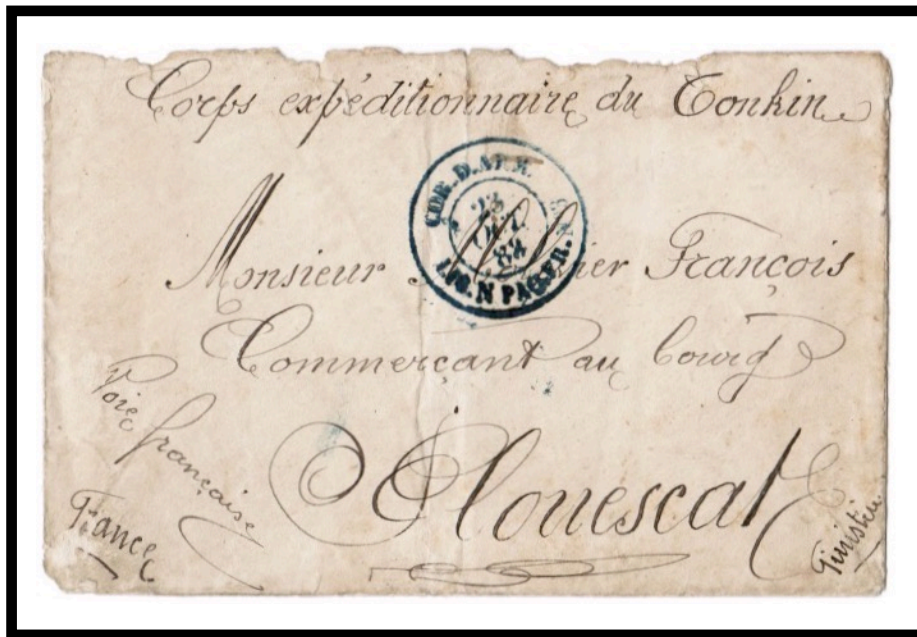 Corps expéditionnaire du Tonkin
COR. D. ARM.
23
OCT.
84
LIG. N PAQ. FR.
Monsieur François
Commerçant au bourg
Voie française
Plouescat
France
Finistère